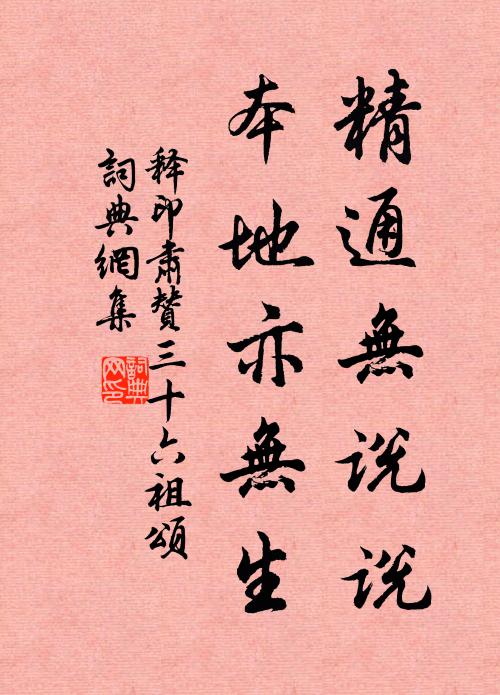 精通無説説
本地亦無生
释印肅贊三十六祖頌
詞典網集
詞典網印